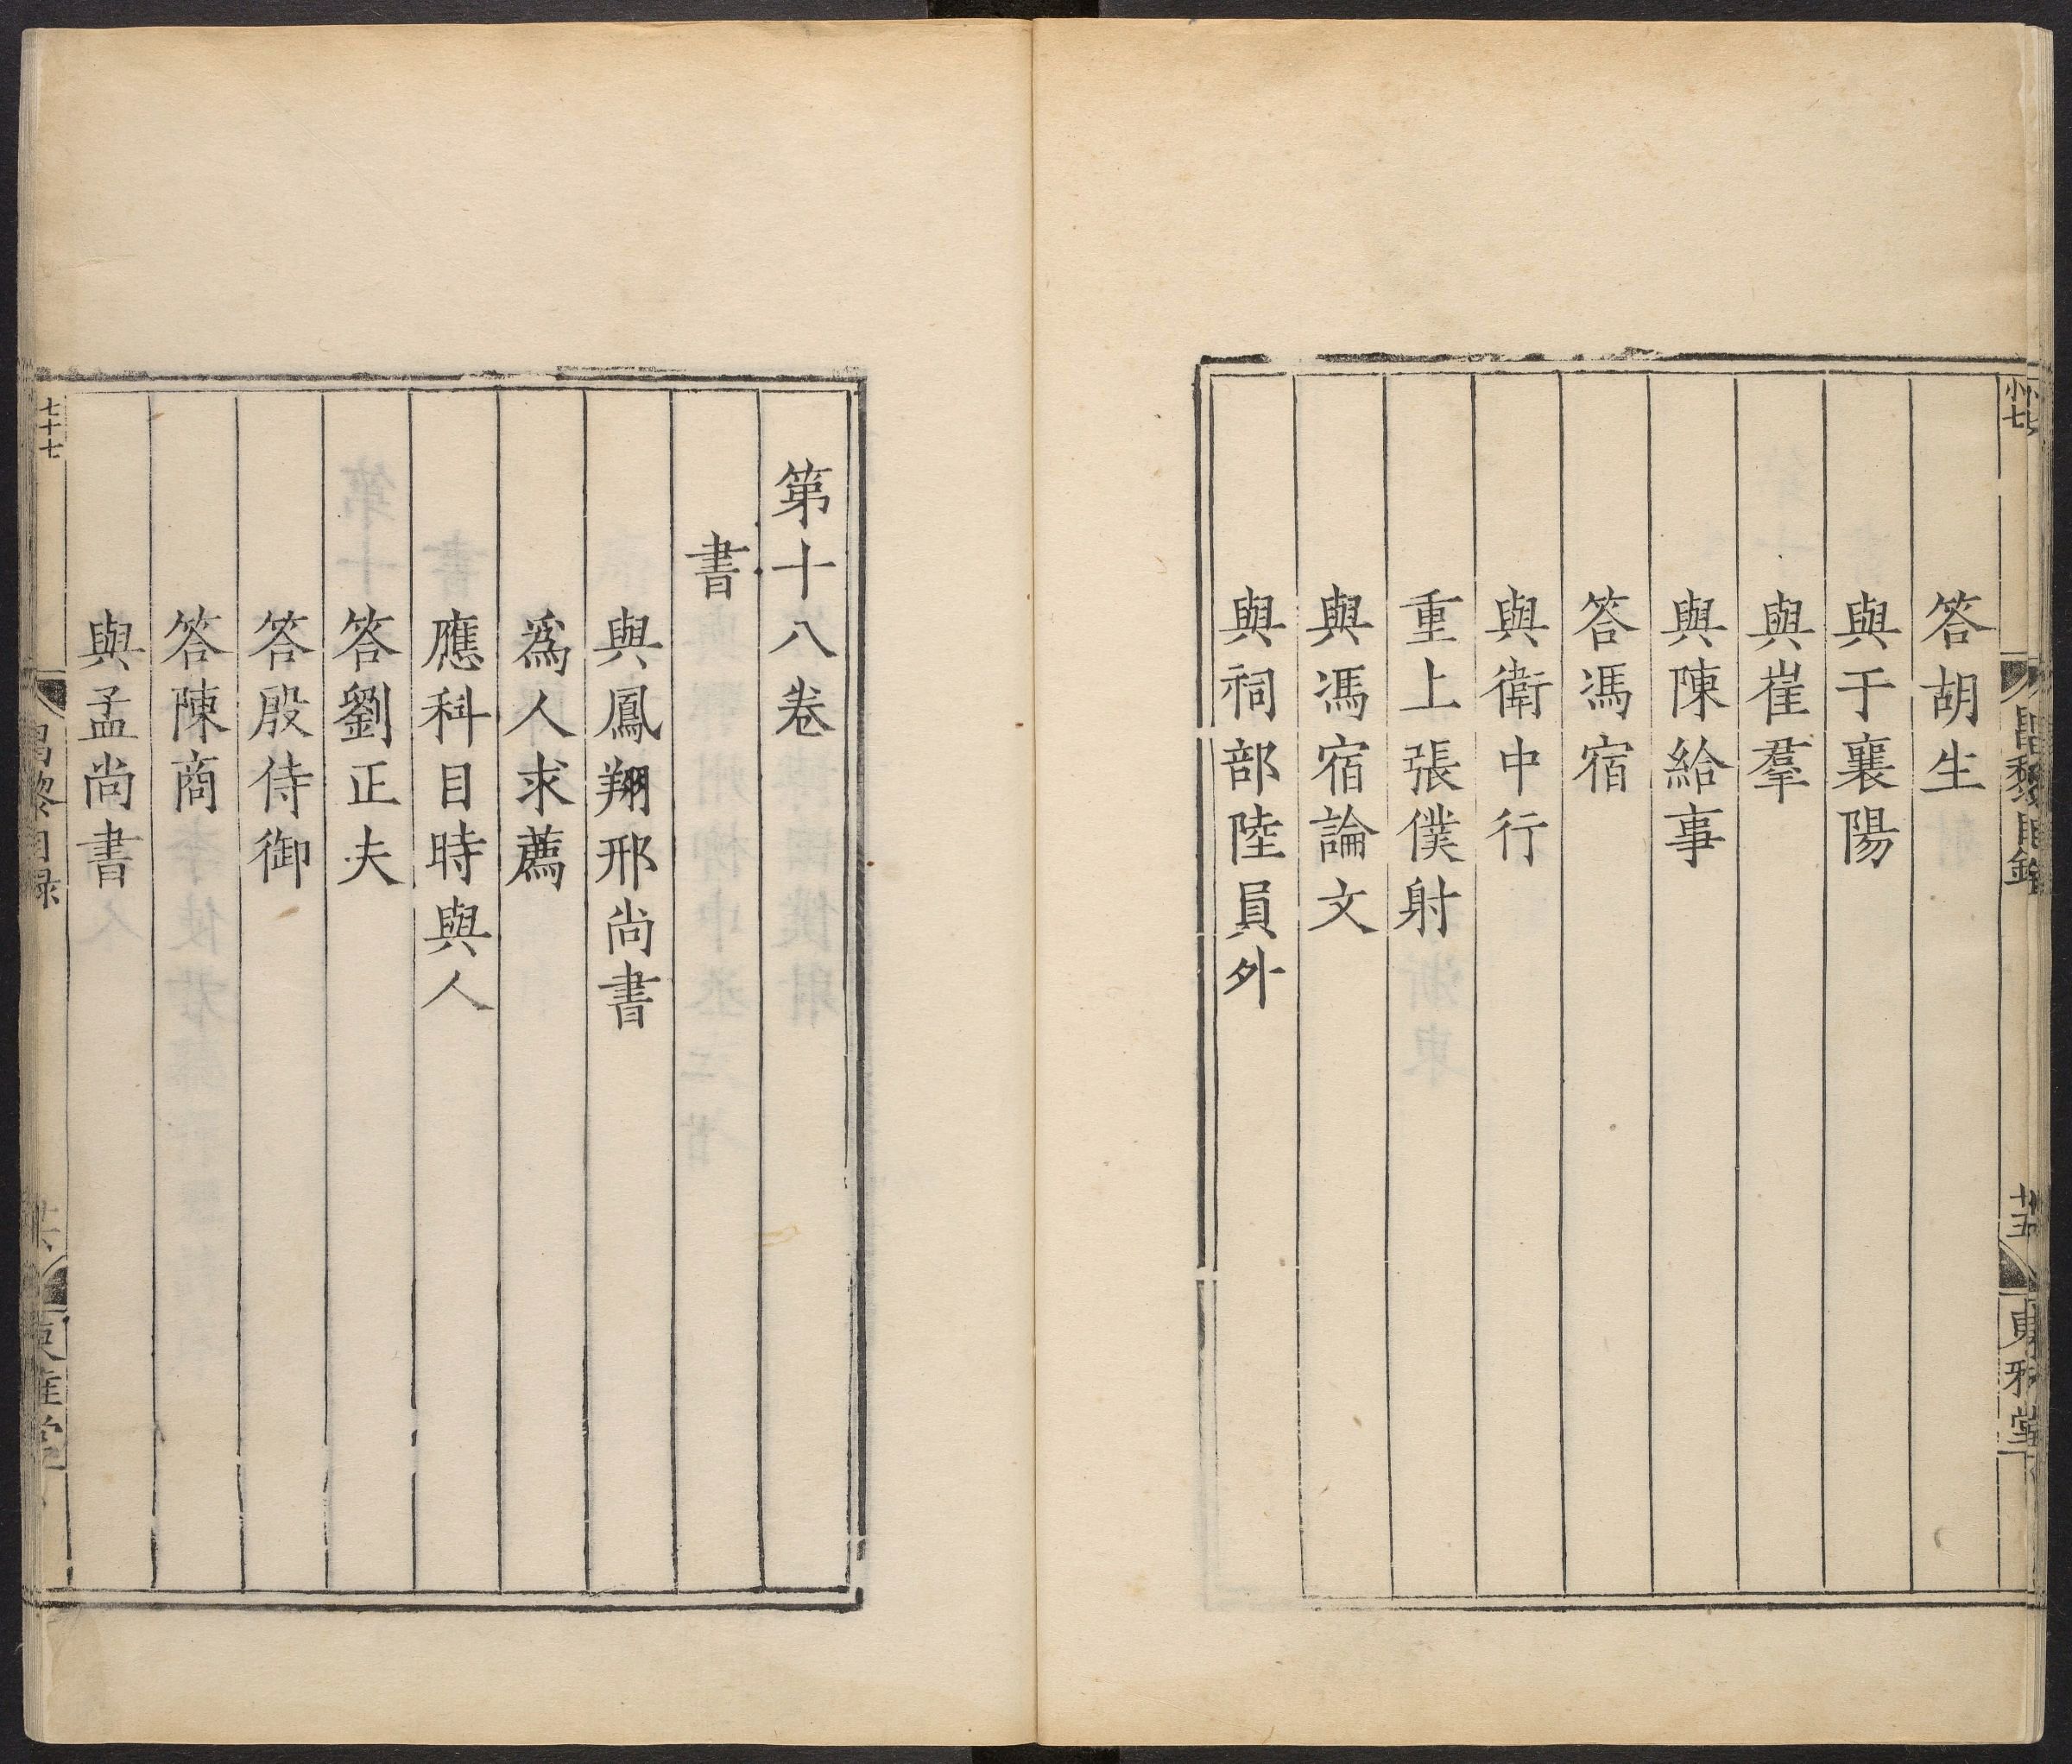 答胡生
與于襄陽
與崔羣
與陳給事
答馮宿
與衛中行
重上張僕射
與馮宿論文
與祠部陸員外
昌黎目錄
廿五
東雅堂
第十八卷
書
與鳳翔邢尚書
爲人求薦
應科目時與人
答劉正夫
答殷侍御
答陳商
與孟尚書
七十七
昌黎目錄
東雅堂